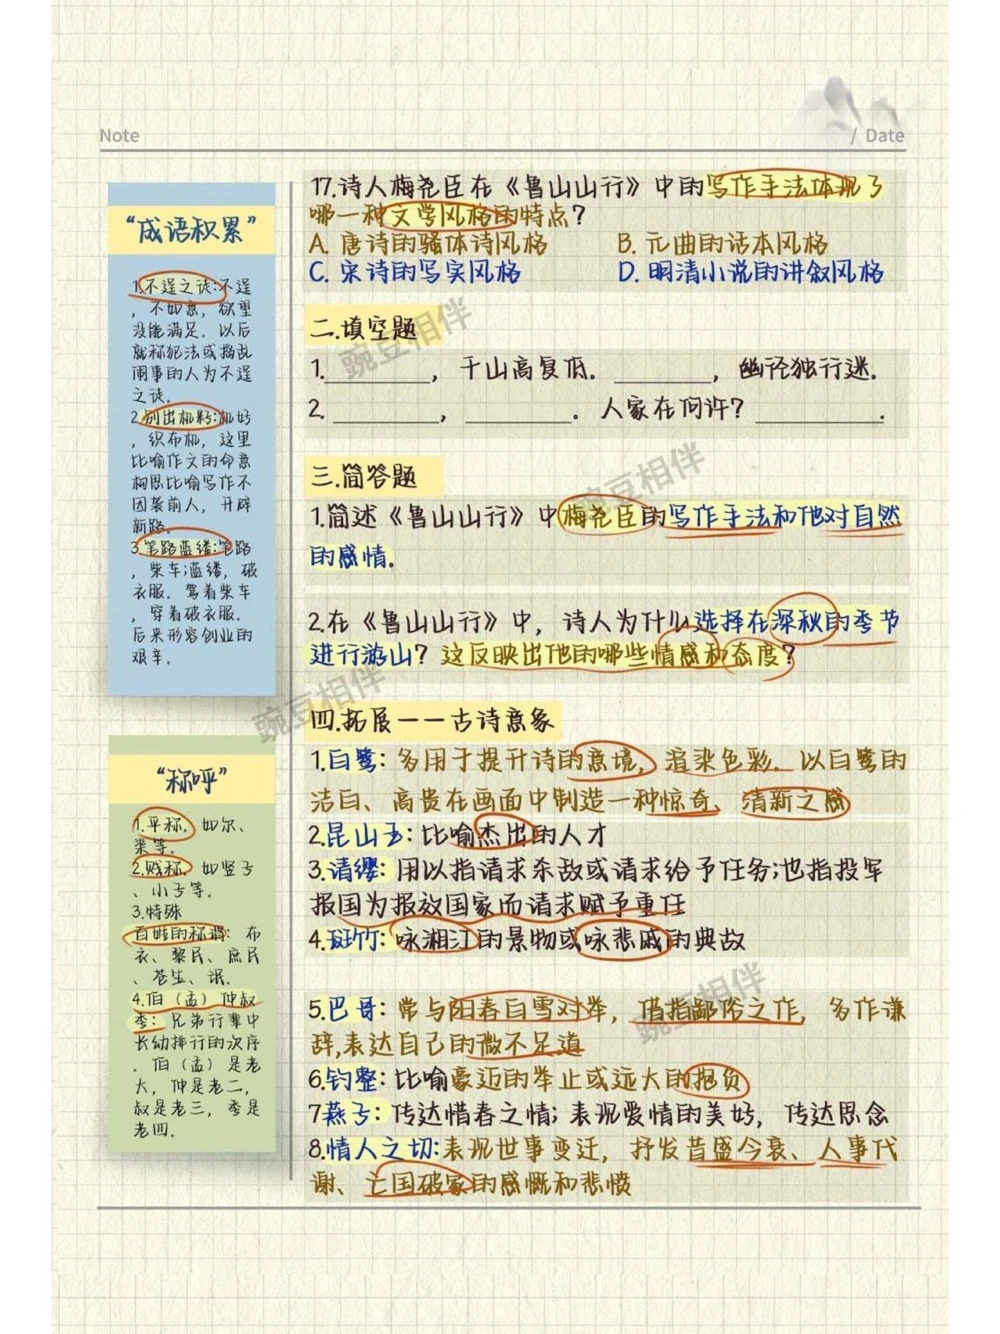 Note
/ Date
“成语积累”
1.不逞之徒:不逞
,不如意，欲望
没能满足．以后
就称犯法或捣乱
闹事的人为不逞
之徒．
2.别出机杼:机杼
,织布机，这里
比喻作文的命意
构思比喻写作不
因袭前人，开辟
新路．
3.筚路蓝缕:筚路
,柴车;蓝缕，破
衣服．驾着柴车
,穿着破衣服．
后来形容创业的
艰辛．
“称呼”
1.平称，如尔、
渠等．
2.贱称，如竖子
、小子等．
3.特殊
百姓的称谓：布
衣、黎民、庶民
、苍生、氓．
4.伯（孟）仲叔
季：兄弟行辈中
长幼排行的次序
．伯（孟）是老
大，仲是老二，
叔是老三，季是
老四．
17.诗人梅尧臣在《鲁山山行》中的写作手法体现了
哪一种文学风格的特点？
A. 唐诗的骚体诗风格 B. 元曲的话本风格
C. 宋诗的写实风格 D. 明清小说的讲叙风格
二.填空题
1.________，千山高复低．_______，幽径独行迷．
2.________，________．人家在何许？__________．
三.简答题
1.简述《鲁山山行》中梅尧臣的写作手法和他对自然
的感情．
2.在《鲁山山行》中，诗人为什么选择在深秋的季节
进行游山？这反映出他的哪些情感和态度？
四.拓展——古诗意象
1.白鹭：多用于提升诗的意境，渲染色彩．以白鹭的
洁白、高贵在画面中制造一种惊奇、清新之感
2.昆山玉：比喻杰出的人才
3.请缨：用以指请求杀敌或请求给予任务;也指投军
报国为报效国家而请求赋予重任
4.斑竹：咏湘江的景物或咏悲戚的典故
5.巴哥：常与阳春白雪对举，借指鄙俗之作，多作谦
辞,表达自己的微不足道
6.钓整：比喻豪迈的举止或远大的抱负
7燕子：传达惜春之情；表现爱情的美好，传达思念
8.情人之切:表现世事变迁，抒发昔盛今衰、人事代
谢、亡国破家的感慨和悲愤
豌豆相伴
豌豆相伴
豌豆相伴
豌豆相伴